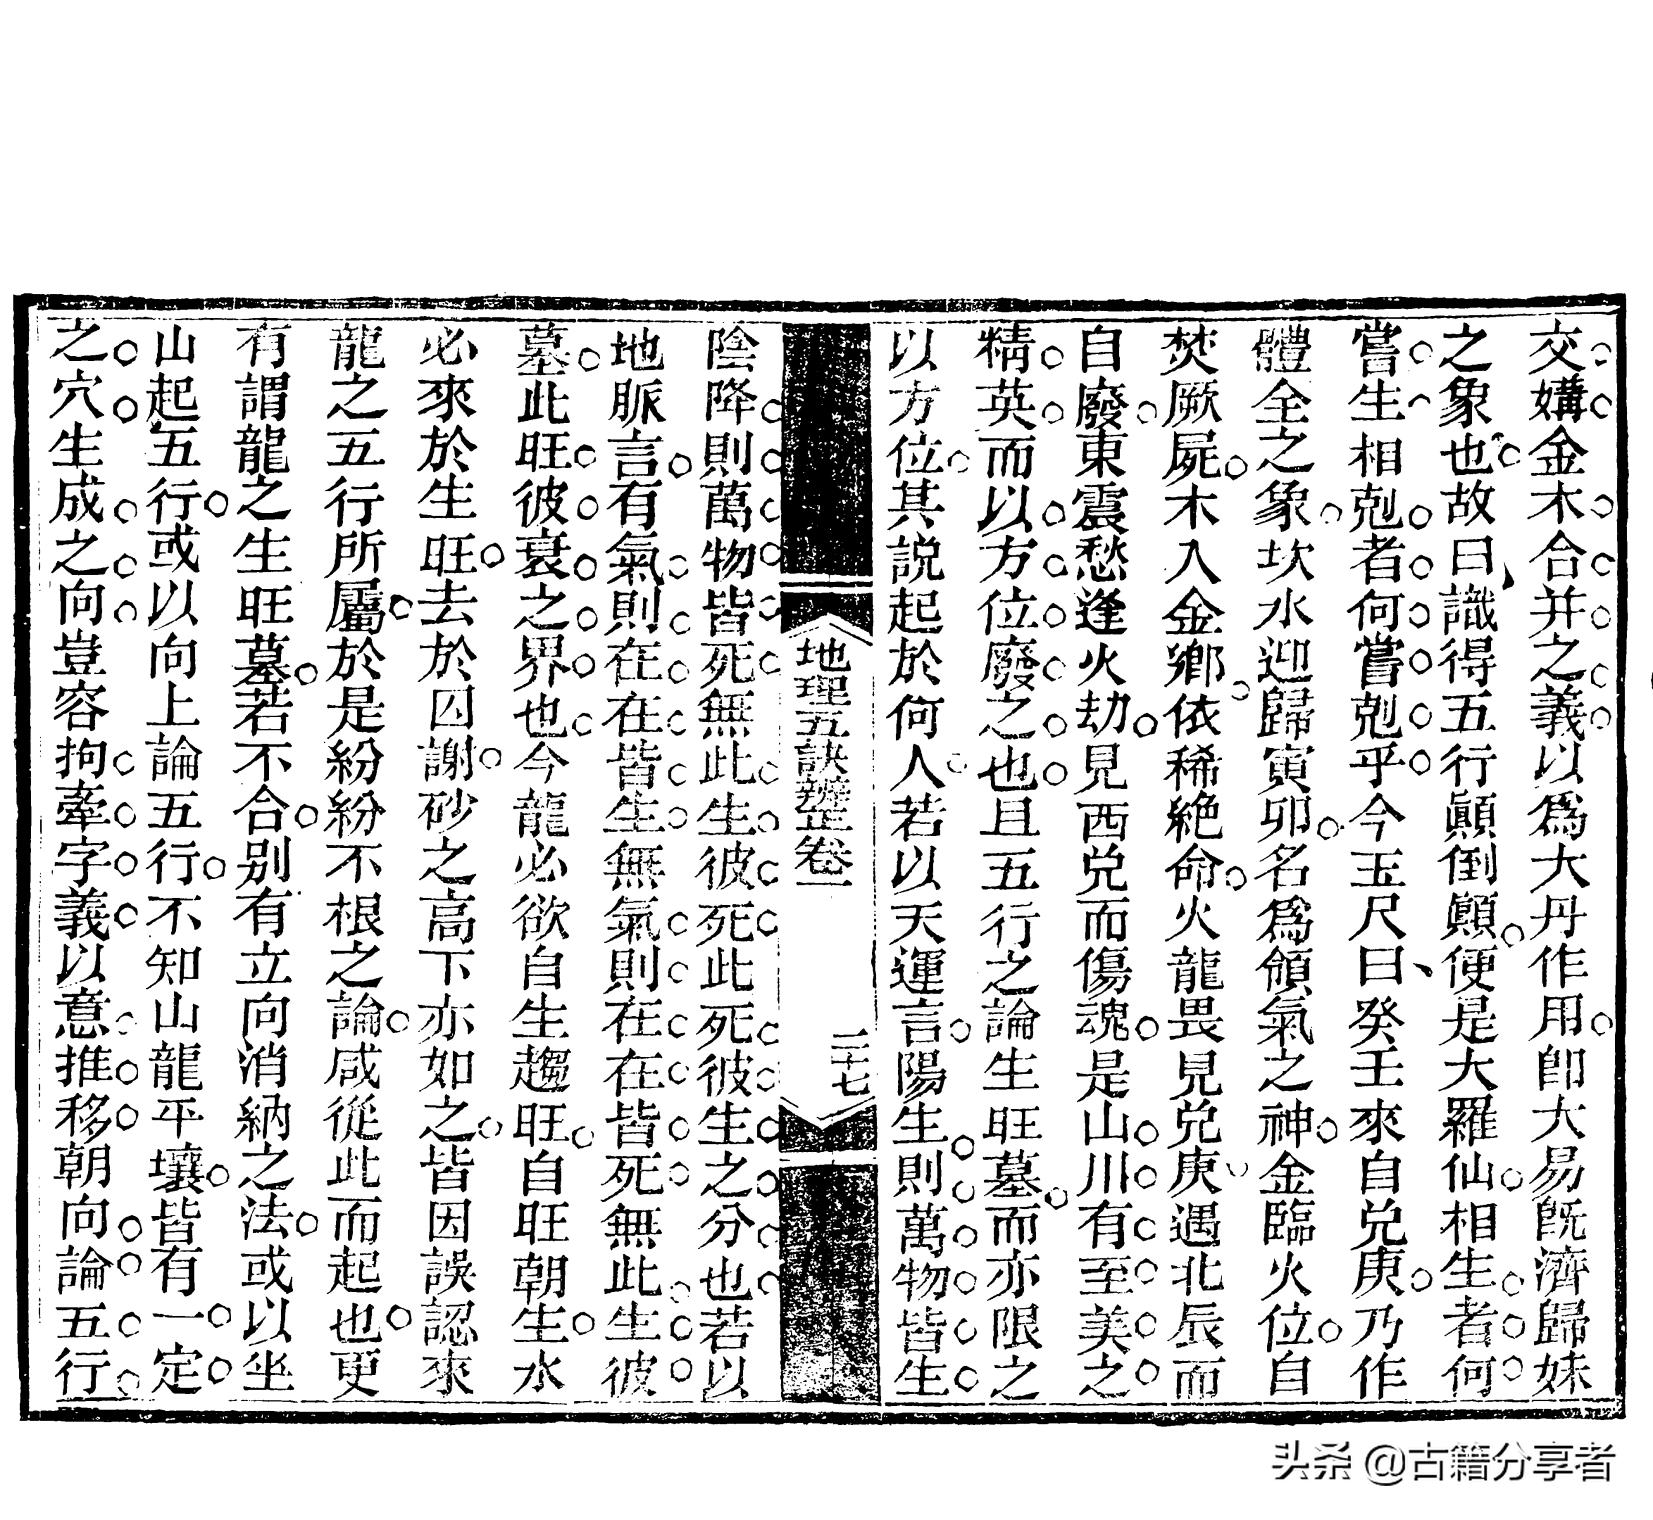 交媾金木合并之義以爲大丹作用卽大易旣濟歸妹
之象也故曰識得五行顚倒顚便是大羅仙相生者何
嘗生相剋者何嘗剋乎今玉尺曰癸壬來自兌庚乃作
體全之象坎水迎歸寅卯名爲領氣之神金臨火位自
焚厥屍木入金鄉依稀絕命火龍畏見兌庚遇北辰而
自廢東震愁逢火劫見西兌而傷魂是山川有至美之
精英而以方位廢之也且五行之論生旺墓而亦限之
以方位其説起於何人若以天運言陽生則萬物皆生
地理五訣辨正卷一
二十七
陰降則萬物皆死無此生彼死此死彼生之分也若以
地脈言有氣則在在皆生無氣則在在皆死無此生彼
墓此旺彼衰之界也今龍必欲自生趨旺自旺朝生水
必來於生旺去於囚謝砂之高下亦如之皆因誤認來
龍之五行所屬於是紛紛不根之論咸從此而起也更
有謂龍之生旺墓若不合別有立向消納之法或以坐
山起五行或以向上論五行不知山龍平壤皆有一定
之穴生成之向豈容拘牽字義以意推移朝向論五行
头条 @古籍分享者